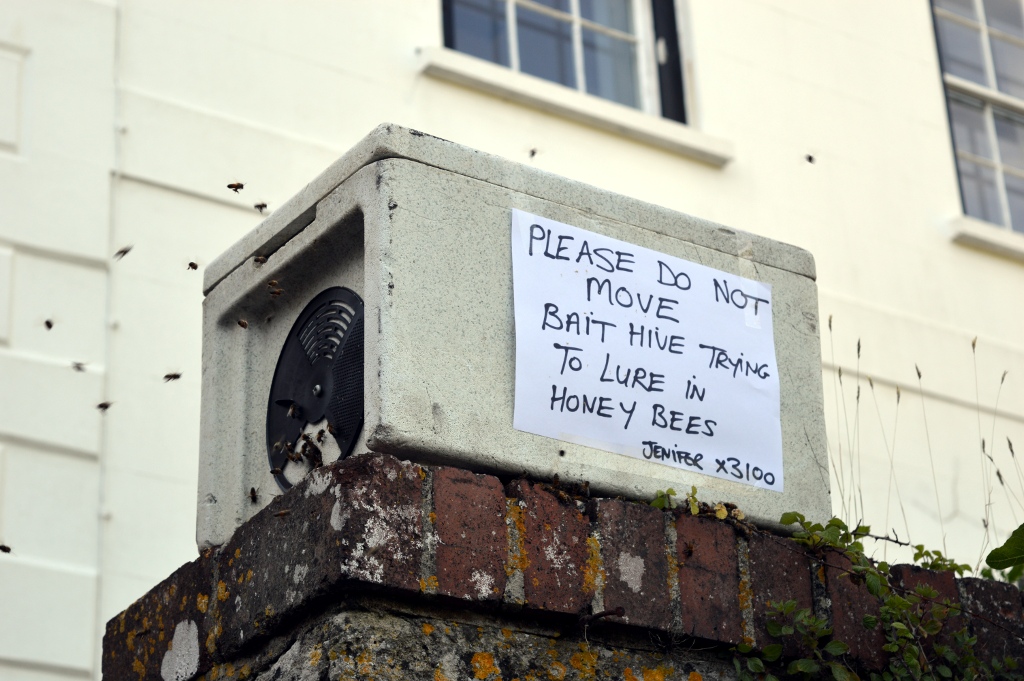 PLEASE DO NOT
MOVE
BAIT HIVE TRYING
TO LURE IN
HONEY BEES
JENIFER X3100